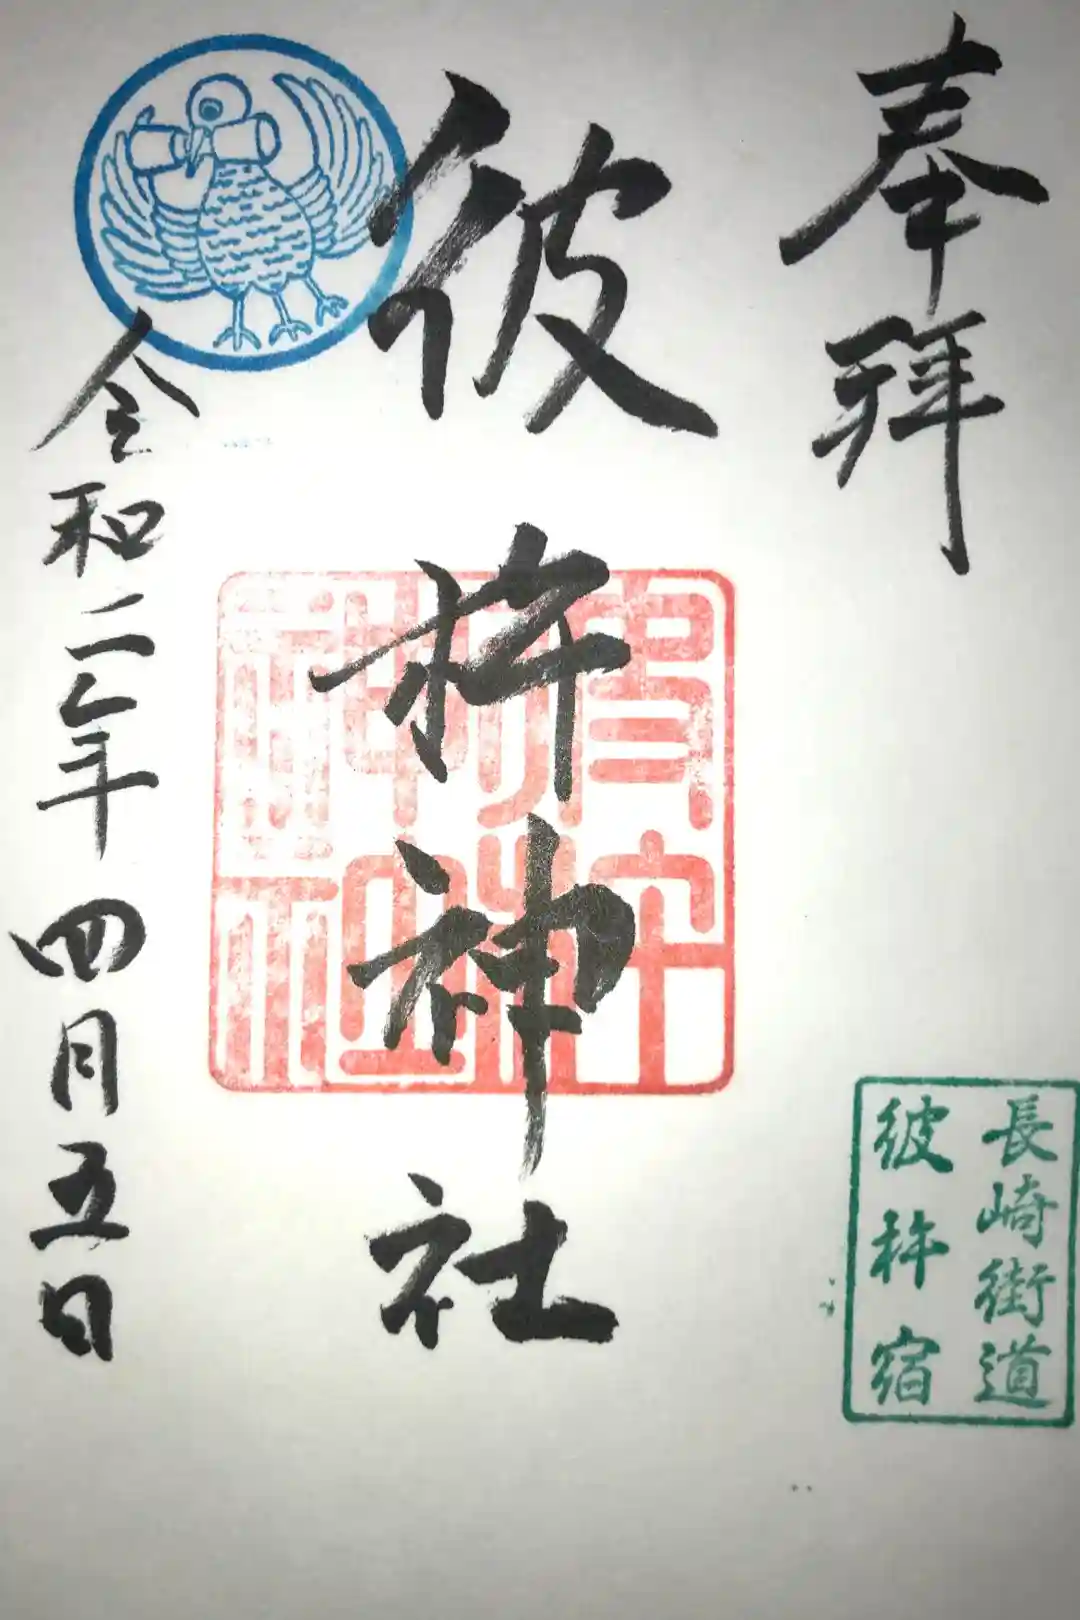 奉拝
長崎街道
彼杵宿
彼杵神社
令和二年四月五日